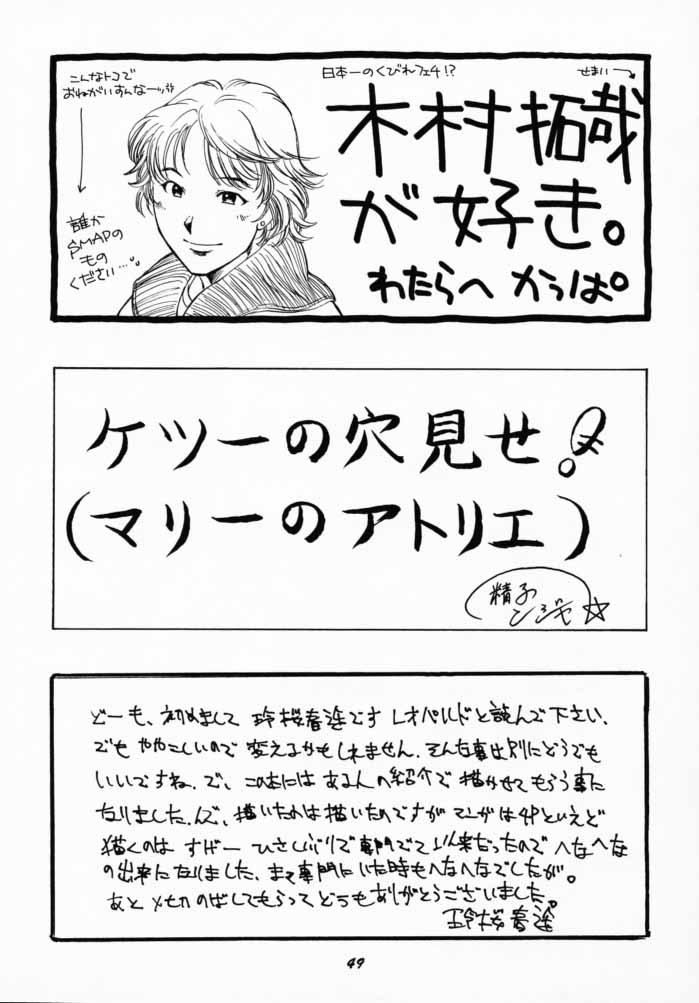 こんなトコで
おねがいすんなーッ!!
誰か
SMAPの
もの
ください…
日本一のくびれフェチ!?
せまい→
木村拓哉
が好き。
わたらへ かっぱ。
ケツーの穴見せ!
(マリーのアトリエ)
精子
ンジャ☆
どーも、初めまして 玲桜春途です レオパルドと読んで下さい、
でも ややこしいので 変えるかもしれません、そんな事は別にどうでも
いいですね。で、この本には ある人の紹介で 描かせてもらう事に
なりました。んで、描いたのは描いたのですが マンガは4Pといえど
描くのは すげー ひさしぶりで専門でて以来だったので へなへな
の出来になりました、まぁ専門にいた時もへなへなでしたが。
あと 〆切のばしてもらって どうもありがとうございました。
玲桜春途
49